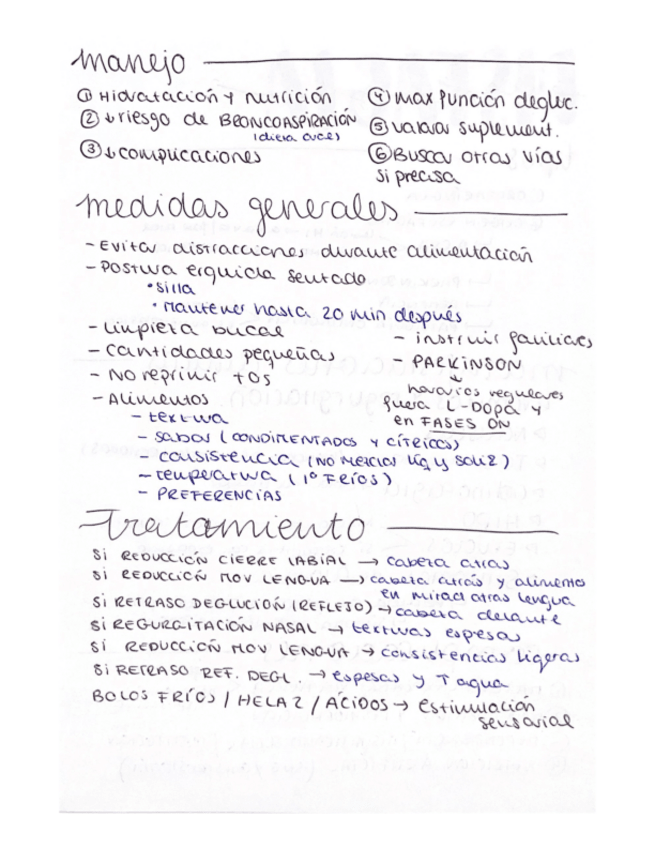 manejo
① Hidratación y nutrición
② ↓ riesgo de BRONCOASPIRACIÓN
③ ↓ complicaciones
④ max función degluc.
⑤ valorar suplement.
⑥ Buscar otras vías
si precisa
medidas generales
- Evitar distracciones durante alimentación
- Postura erguida sentado
• silla
• Mantener hasta 20 min después
- Limpieza bucal
- Cantidades pequeñas
- No reprimir tos
- Alimentos
- textura
- sabor (CONDIMENTADOS y CÍTRICOS)
- consistencia (NO MEZCLAR líq y sólid)
- temperatura (1º FRÍOS)
- PREFERENCIAS
- instruir familiares
- PARKINSON
↳ horarios regulares
fuera L-DOPA y
en FASES ON
Tratamiento
SI REDUCCIÓN CIERRE LABIAL → cabeza atrás
SI REDUCCIÓN MOV LENGUA → cabeza atrás y alimento
en mitad atras lengua
SI RETRASO DEGLUCIÓN (REFLEJO) → cabeza delante
SI REGURGITACIÓN NASAL → texturas espesas
SI REDUCCIÓN MOV LENGUA → consistencias ligeras
SI RETRASO REF. DEGL. → espesas y T agua
BOLOS FRÍOS / HELAD / ÁCIDOS → estimulación
sensorial